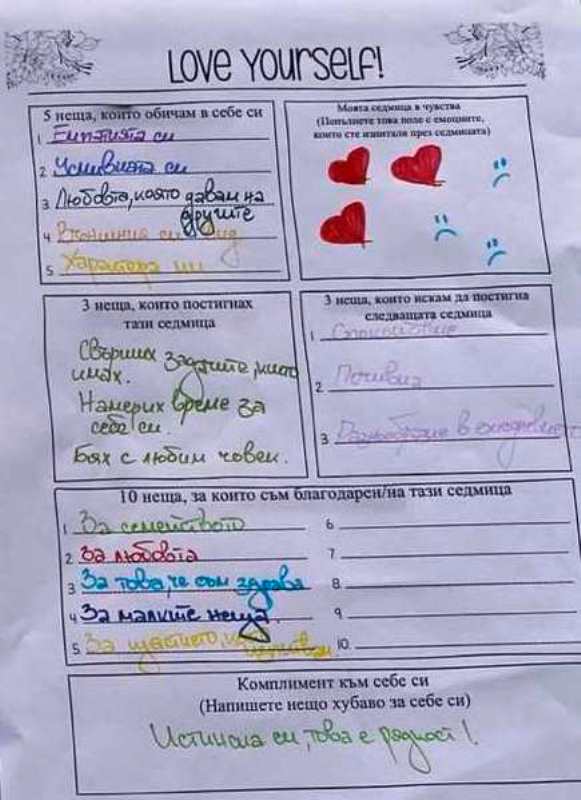 LOVE YOURSELF!
5 неща, които обичам в себе си
1 Емпатията си
2 Усмивката си
3 Любовта, която давам на
другите
4 Външния си вид
5 Характера ми
Моята седмица в чувства
(Попълнете това поле с емоциите,
които сте изпитали през седмицата)
3 неща, които постигнах
тази седмица
Свърших задачите, които
имах.
Намерих време за
себе си.
Бях с любим човек.
3 неща, които искам да постигна
следващата седмица
1 Спокойствие
2 Почивка
3 Разнообразие в ежедневието
10 неща, за които съм благодарен/на тази седмица
1 За семейството
2 За любовта
3 За това, че съм здрава
4 За малките неща.
5. За щастието,
6
7
8
9
10.
Комплимент към себе си
(Напишете нещо хубаво за себе си)
Истинска си, това е рядкост!